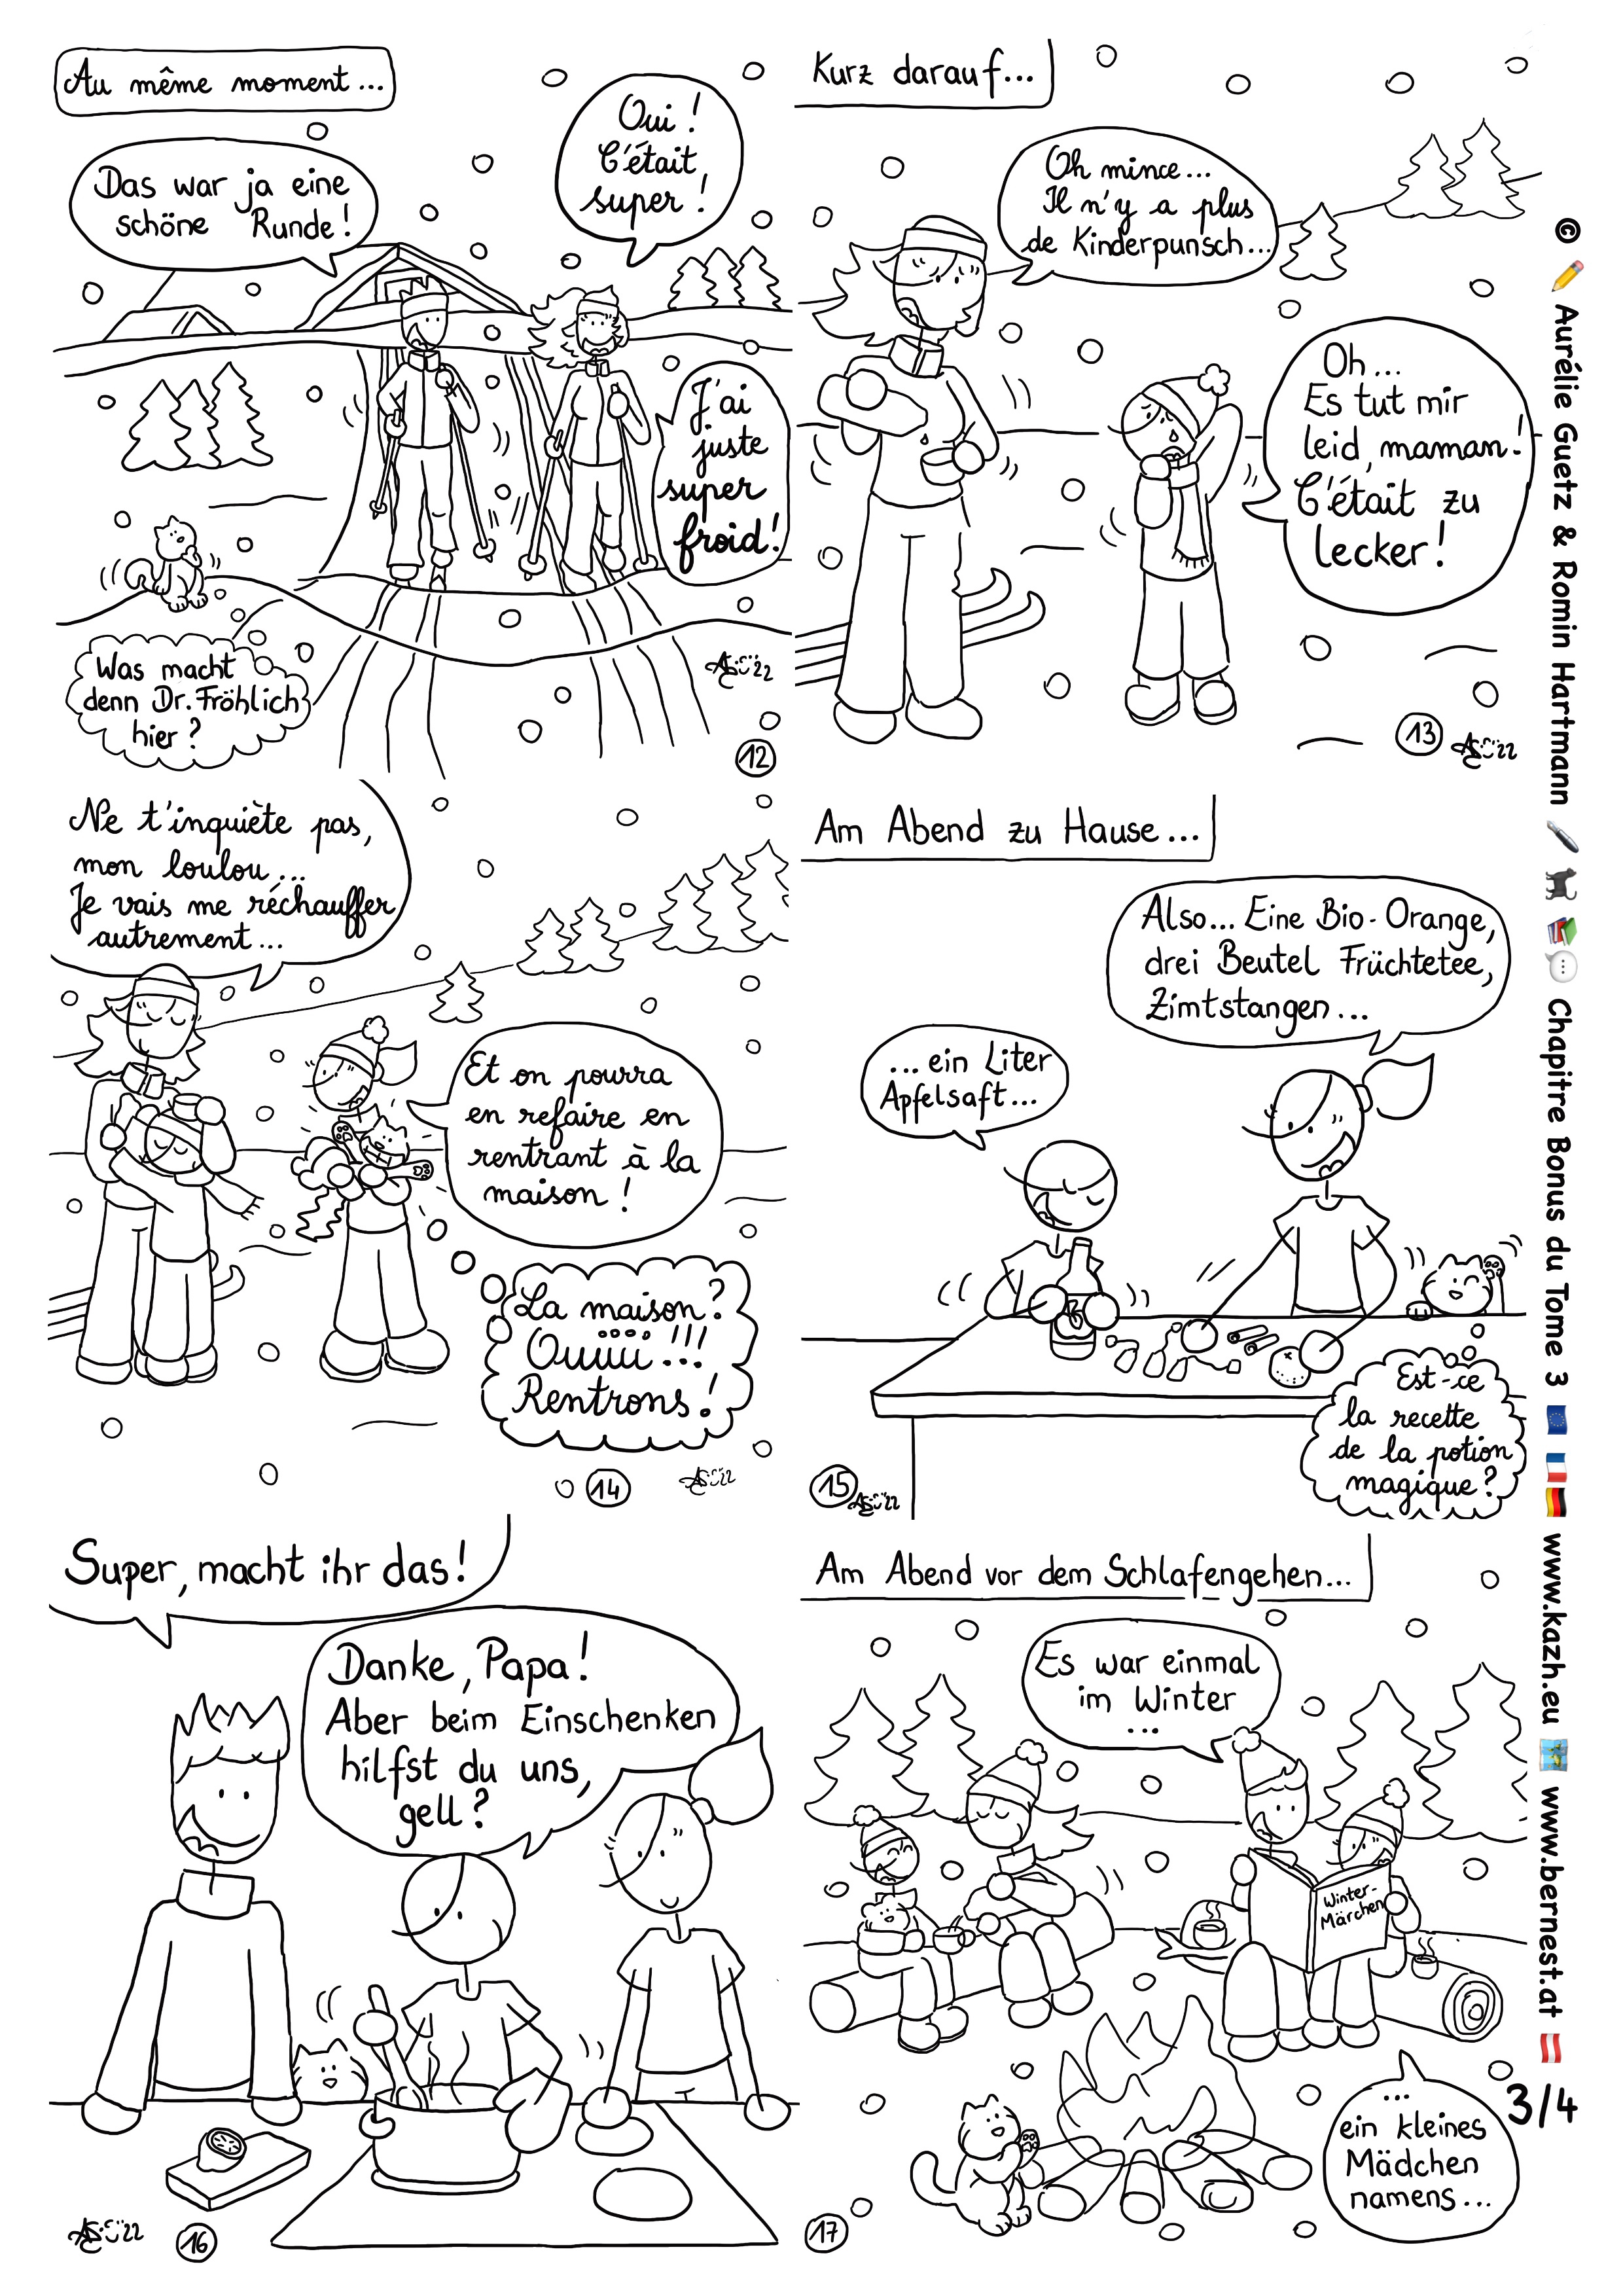 Au même moment...
Das war ja eine
schöne Runde!
Oui !
C'était
super !
J'ai
juste
super
froid!
Was macht
denn Dr. Fröhlich
hier ?
12
Kurz darauf...
Oh mince...
Il n'y a plus
de Kinderpunsch...
Oh...
Es tut mir
leid, maman!
C'était zu
lecker!
13
Ne t'inquiète pas,
mon loulou...
Je vais me réchauffer
autrement...
Et on pourra
en refaire en
rentrant à la
maison !
La maison?
Ouiiii !!!
Rentrons!
14
Am Abend zu Hause...
Also... Eine Bio-Orange,
drei Beutel Früchtetee,
Zimtstangen...
...ein Liter
Apfelsaft...
Est-ce
la recette
de la potion
magique?
15
Super, macht ihr das!
Danke, Papa!
Aber beim Einschenken
hilfst du uns,
gell?
16
Am Abend vor dem Schlafengehen...
Es war einmal
im Winter
...
Winter-
Märchen
...
ein kleines
Mädchen
namens...
17
© Aurélie Guetz & Romin Hartmann Chapitre Bonus du Tome 3 www.kazh.eu www.bernest.at
3/4